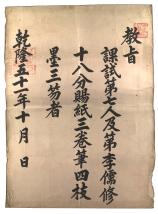 教旨
課試第七人及第李儒修
十八分賜紙三卷筆四枝
墨三笏者
乾隆五十一年十月　日